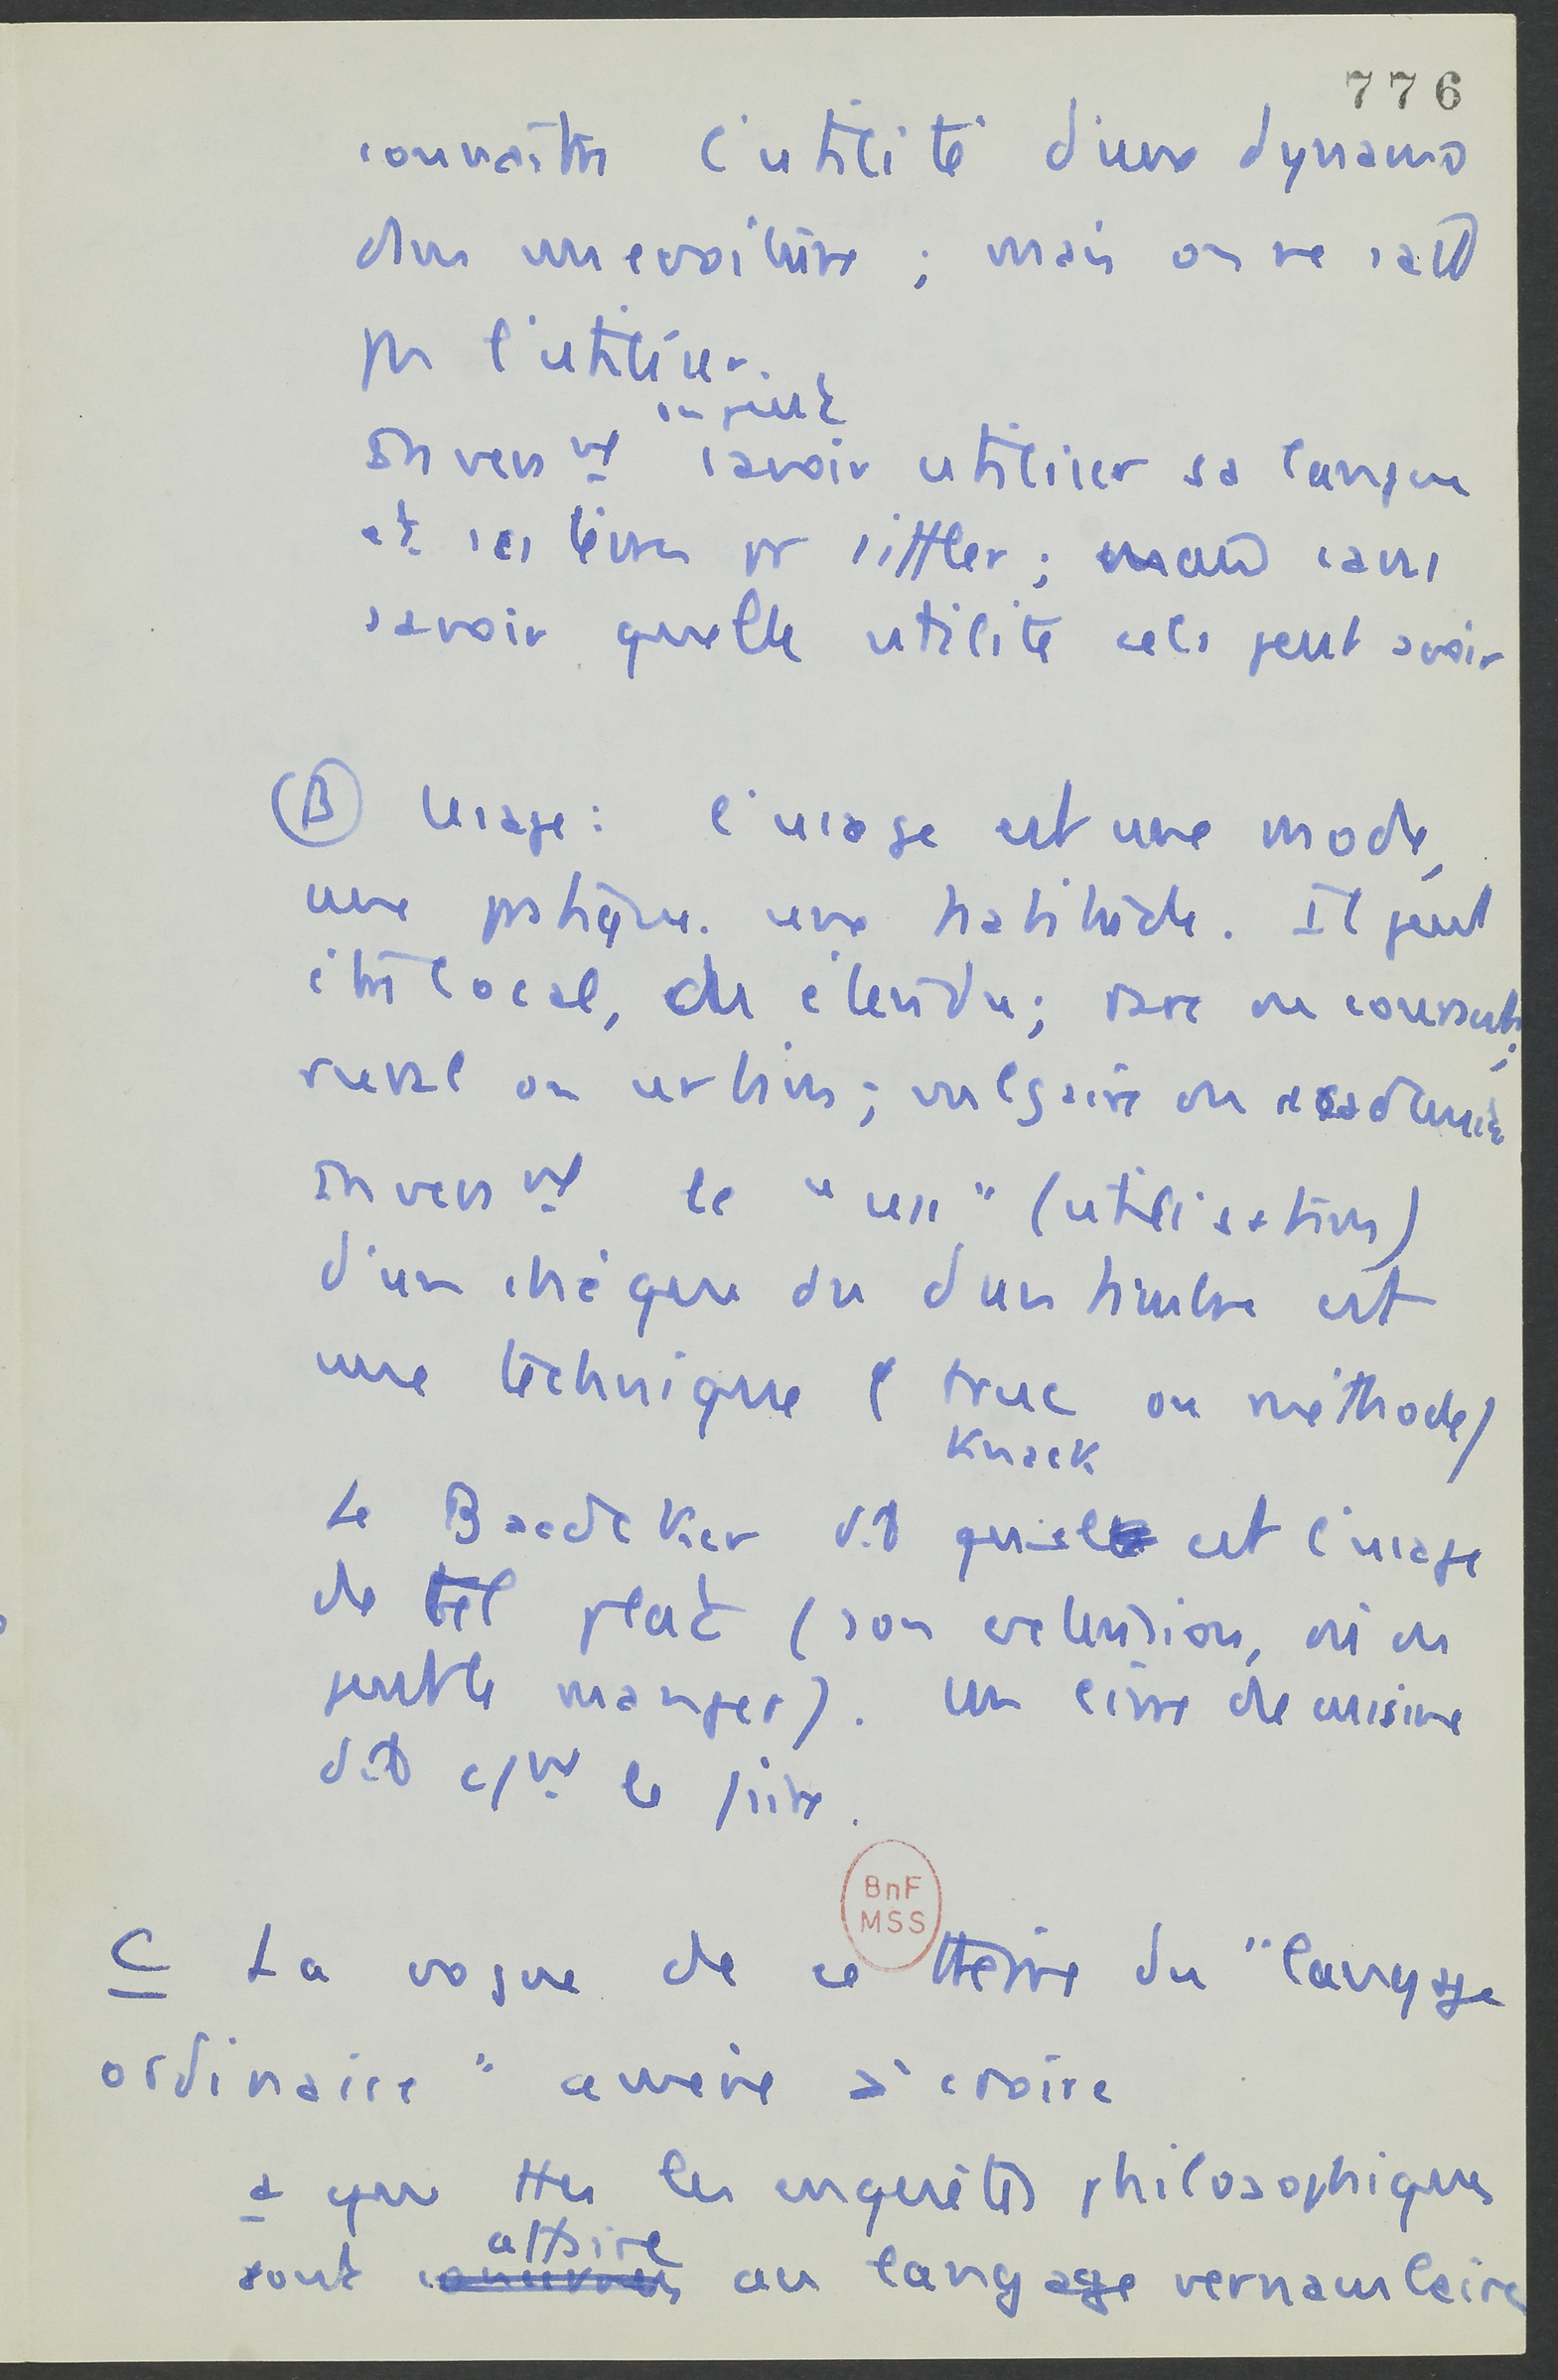 776
connaître l'utilité d'une dynamo
dans une voiture ; mais on ne sait
pas l'utiliser.
on peut
Invers^nt savoir utiliser sa langue
et ses lèvres pr siffler ; mais sans
savoir quelle utilité cela peut avoir
(B) Usage : l'usage est une mode,
une pratique, une habitude. Il peut
être local, ou étendu ; rare ou courant ;
rural ou urbain ; vulgaire ou académiq
Invers^nt le "use" (utilisation)
d'un chèque ou d'un timbre est
une technique ( truc ou méthode)
knack
Le Baedeker dit quel est l'usage
de tel plat (son extension, où on
peut le manger). Un livre de cuisine
dit c/^nt le
BnF
MSS
C La vogue de ce thème du "langage
ordinaire" amène à croire
a que ttes les enquêtes philosophiques
affaire
sont au langage vernaculaire